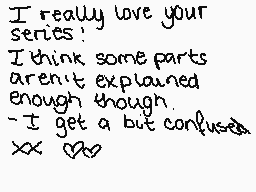 I really love your
series!
I think some parts
aren't explained
enough though.
- I get a but confused
xx ♡♡